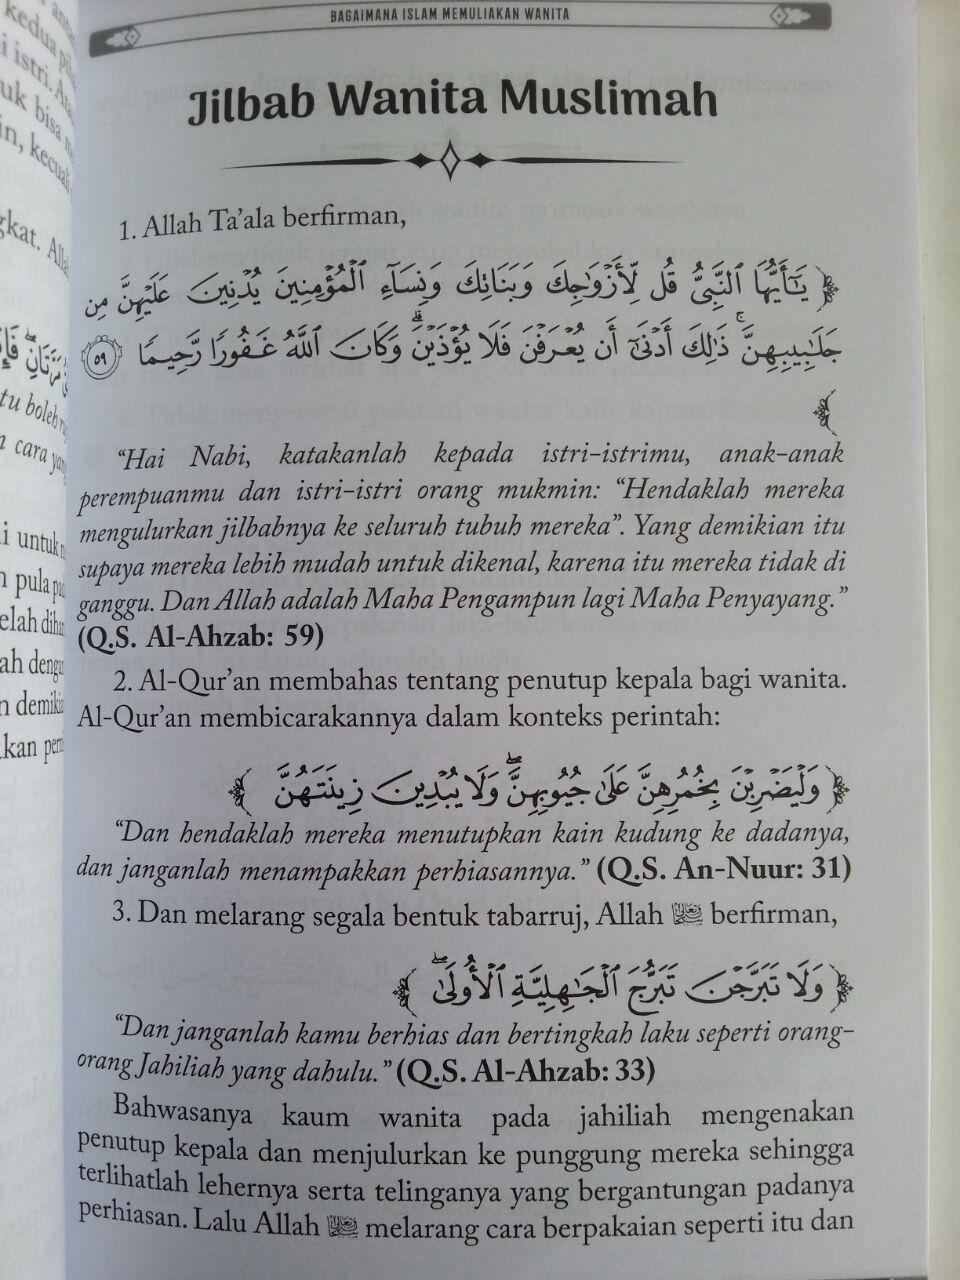 BAGAIMANA ISLAM MEMULIAKAN WANITA
Jilbab Wanita Muslimah
1. Allah Ta’ala berfirman,
﴿ يَٰٓأَيُّهَا ٱلنَّبِيُّ قُل لِّأَزْوَٰجِكَ وَبَنَاتِكَ وَنِسَآءِ ٱلْمُؤْمِنِينَ يُدْنِينَ عَلَيْهِنَّ مِن
جَلَٰبِيبِهِنَّ ۚ ذَٰلِكَ أَدْنَىٰٓ أَن يُعْرَفْنَ فَلَا يُؤْذَيْنَ ۗ وَكَانَ ٱللَّهُ غَفُورًا رَّحِيمًا ٥٩
﴾
“Hai Nabi, katakanlah kepada istri-istrimu, anak-anak
perempuanmu dan istri-istri orang mukmin: “Hendaklah mereka
mengulurkan jilbabnya ke seluruh tubuh mereka”. Yang demikian itu
supaya mereka lebih mudah untuk dikenal, karena itu mereka tidak di
ganggu. Dan Allah adalah Maha Pengampun lagi Maha Penyayang.”
(Q.S. Al-Ahzab: 59)
2. Al-Qur’an membahas tentang penutup kepala bagi wanita.
Al-Qur’an membicarakannya dalam konteks perintah:
﴿ وَلْيَضْرِبْنَ بِخُمُرِهِنَّ عَلَىٰ جُيُوبِهِنَّ ۖ وَلَا يُبْدِينَ زِينَتَهُنَّ ﴾
“Dan hendaklah mereka menutupkan kain kudung ke dadanya,
dan janganlah menampakkan perhiasannya.” (Q.S. An-Nuur: 31)
3. Dan melarang segala bentuk tabarruj, Allah ﷻ berfirman,
﴿ وَلَا تَبَرَّجْنَ تَبَرُّجَ ٱلْجَٰهِلِيَّةِ ٱلْأُولَىٰ ۖ ﴾
“Dan janganlah kamu berhias dan bertingkah laku seperti orang-
orang Jahiliah yang dahulu.” (Q.S. Al-Ahzab: 33)
Bahwasanya kaum wanita pada jahiliah mengenakan
penutup kepala dan menjulurkan ke punggung mereka sehingga
terlihatlah lehernya serta telinganya yang bergantungan padanya
perhiasan. Lalu Allah ﷻ melarang cara berpakaian seperti itu dan